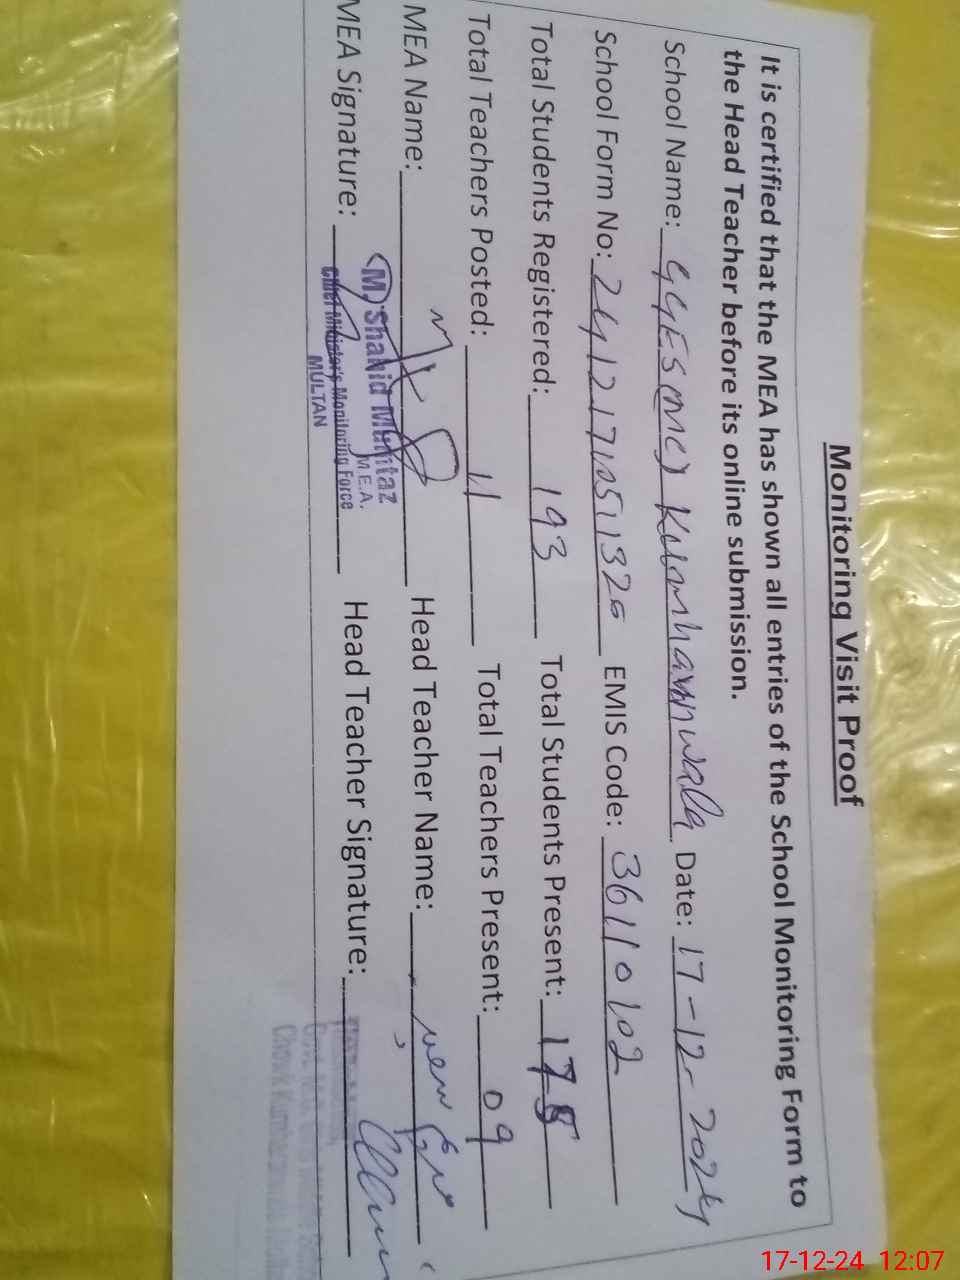 Monitoring Visit Proof
It is certified that the MEA has shown all entries of the School Monitoring Form to
the Head Teacher before its online submission.
School Name: GGES(MC) Kumharanwala Date: 17-12-2024
School Form No: EMIS Code: 36110102
Total Students Registered: 193 Total Students Present: 175
Total Teachers Posted: 11 Total Teachers Present: 09
MEA Name: Head Teacher Name:
MEA Signature: Head Teacher Signature:
(M) Shahid Mumtaz
M.E.A.
Chief Minister's Monitoring Force
MULTAN
17-12-24 12:07